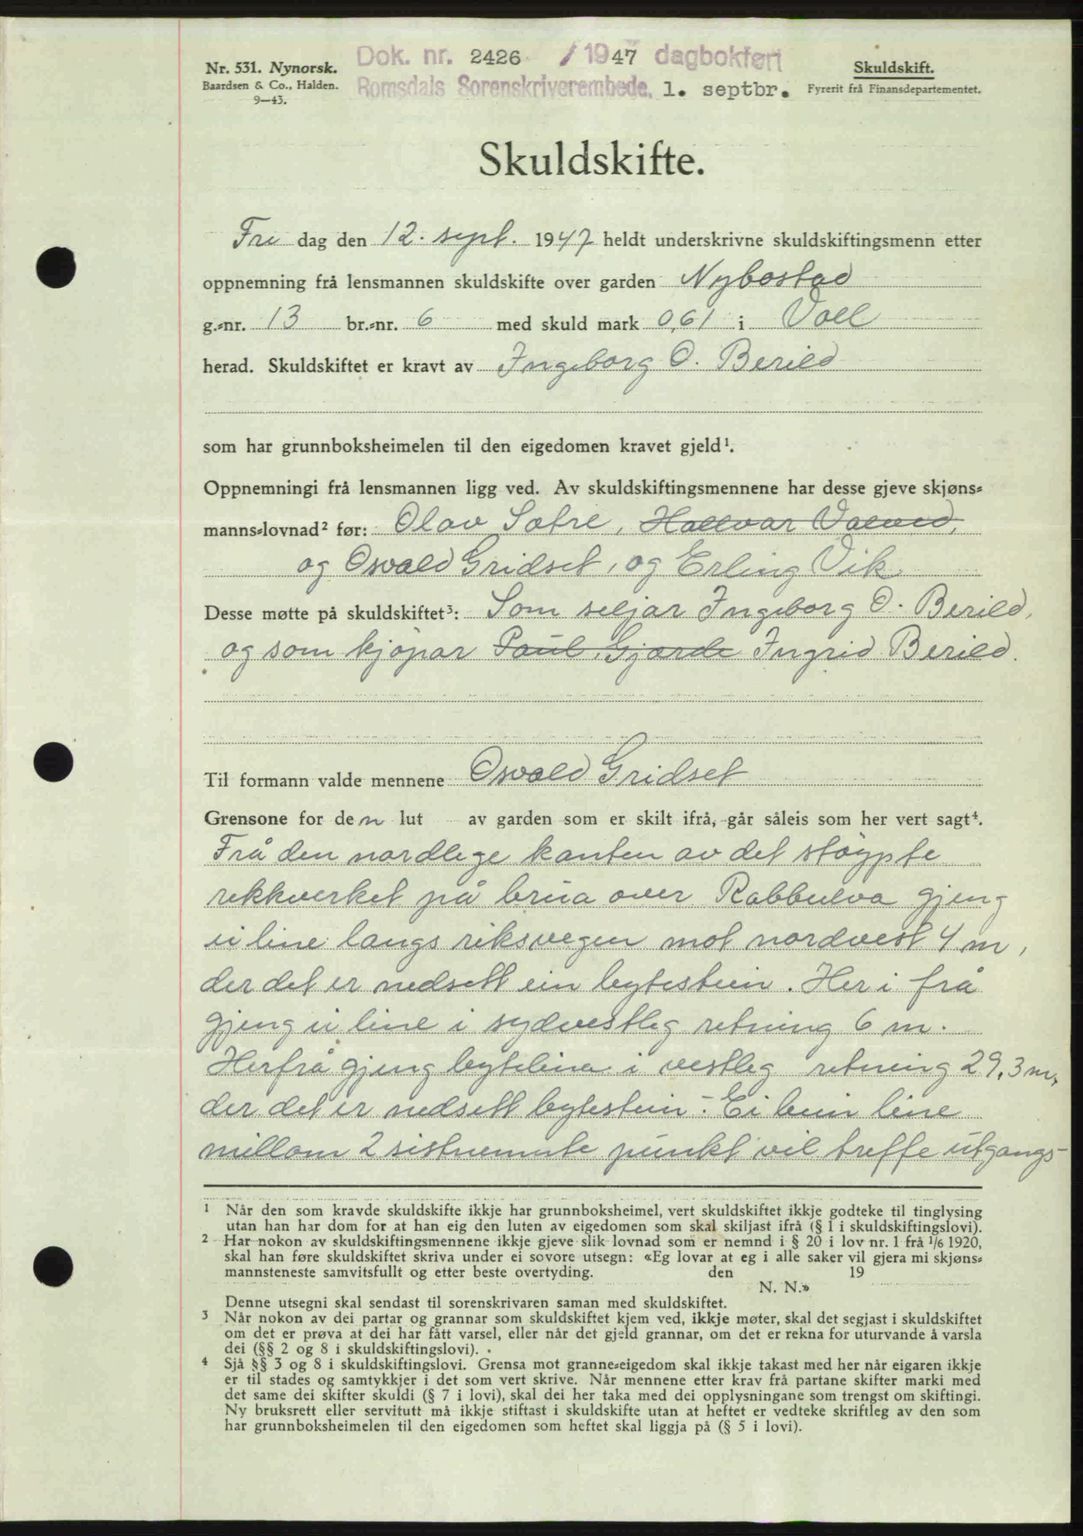 Nr. 531. Nynorsk.
Baardsen & Co., Halden.
9—43.
Dok. nr. 2426 / 1947 dagbokført
Romsdals Sorenskriverembede, 1. septbr.
Skuldskift.
Fyrerit frå Finansdepartementet.
Skuldskifte.
Fre dag den 12. sept. 1947 heldt underskrivne skuldskiftingsmenn etter
oppnemning frå lensmannen skuldskifte over garden Nybostad
g.-nr. 13 br.-nr. 6 med skuld mark 0,61 i Voll
herad. Skuldskiftet er kravt av Ingeborg O. Berild
som har grunnboksheimelen til den eigedomen kravet gjeld¹.
Oppnemningi frå lensmannen ligg ved. Av skuldskiftingsmennene har desse gjeve skjøns-
manns-lovnad² før: Olav Sætre, Hallvar
og Osvald Gridset, og Erling Vik
Desse møtte på skuldskiftet³: Som seljar Ingeborg O. Berild,
og som kjøpar Paul Gjærde Ingrid Berild.
Til formann valde mennene Osvald Gridset
Grensone for den lut av garden som er skilt ifrå, går såleis som her vert sagt⁴.
Frå den nordlege kanten av det støypte
rekkverket på brua over Rabbelva gjeng
ei line langs riksvegen mot nordvest 4 m,
der det er nedsett ein bytestein. Her i frå
gjeng ei line i sydvestleg retning 6 m.
Herfrå gjeng bytelina i vestleg retning 29,3 m,
der det er nedsett bytestein. Ei bein line
millom 2 sistnemnte punkt vil treffe utgangs-
¹ Når den som kravde skuldskifte ikkje har grunnboksheimel, vert skuldskiftet ikkje godteke til tinglysing
utan han har dom for at han eig den luten av eigedomen som skal skiljast ifrå (§ 1 i skuldskiftingslovi).
² Har nokon av skuldskiftingsmennene ikkje gjeve slik lovnad som er nemnd i § 20 i lov nr. 1 frå 1/6 1920,
skal han føre skuldskiftet skriva under ei sovore utsegn: «Eg lovar at eg i alle saker vil gjera mi skjøns-
mannsteneste samvitsfullt og etter beste overtyding. den 19
N. N.»
Denne utsegni skal sendast til sorenskrivaren saman med skuldskiftet.
³ Når nokon av dei partar og grannar som skuldskiftet kjem ved, ikkje møter, skal det segjast i skuldskiftet
om det er prøva at dei har fått varsel, eller når det gjeld grannar, om det er rekna for uturvande å varsla
dei (§§ 2 og 8 i skuldskiftingslovi).
⁴ Sjå §§ 3 og 8 i skuldskiftingslovi. Grensa mot granne-eigedom skal ikkje takast med her når eigaren ikkje
er til stades og samtykkjer i det som vert skrive. Når mennene etter krav frå partane skifter marki med
det same dei skifter skuldi (§ 7 i lovi), skal dei her taka med dei opplysningane som trengst om skiftingi.
Ny bruksrett eller servitutt må ikkje stiftast i skuldskifte utan at heftet er vedteke skriftleg av den som
har grunnboksheimelen til den eigedomen som heftet skal liggja på (§ 5 i lovi).